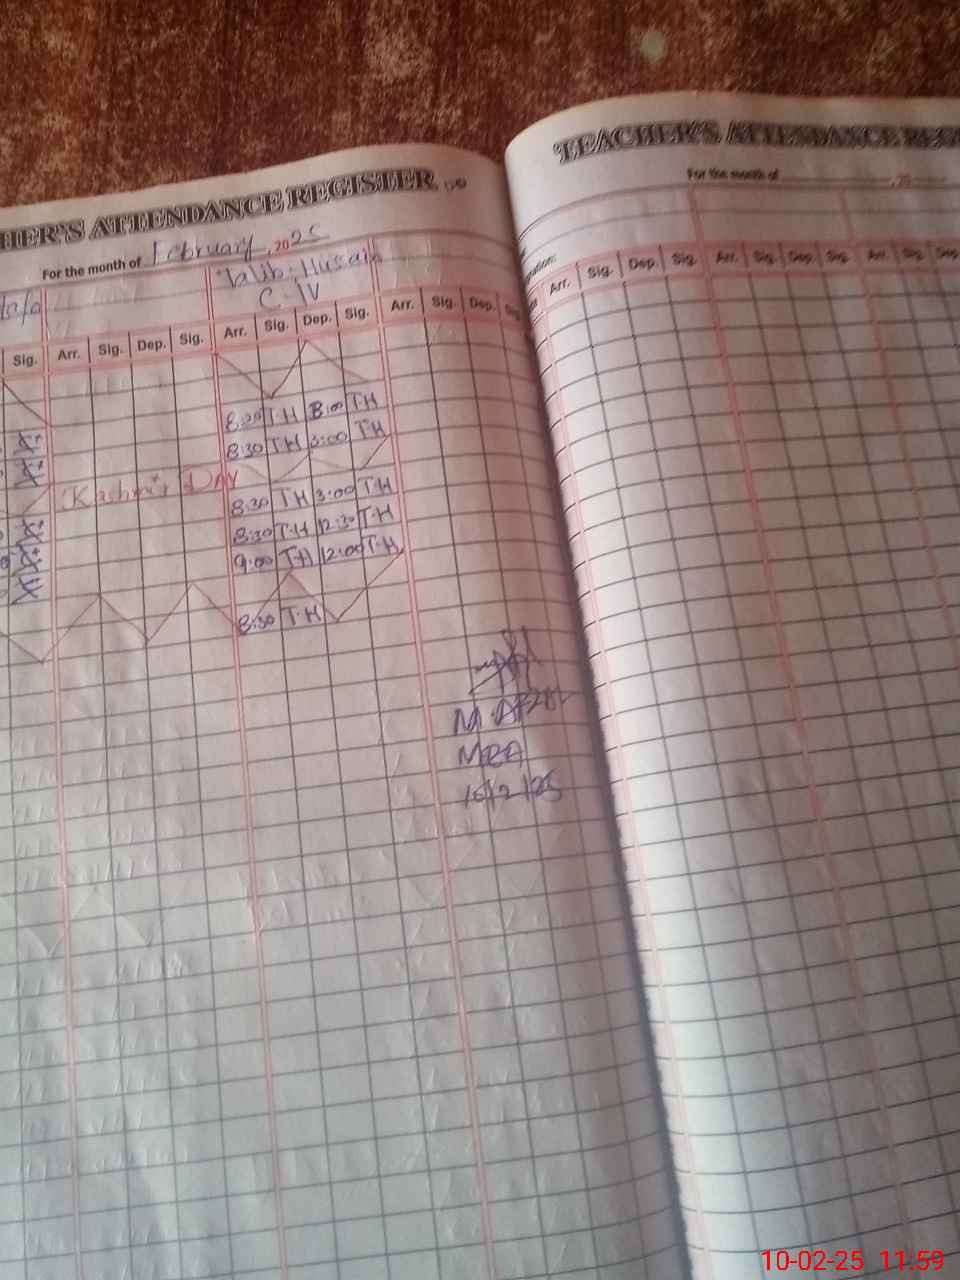 HER'S ATTENDANCE REGISTER
For the month of February, 2025
Talib Husain
C-IV
Sig. Arr. Sig. Dep. Sig. Arr. Sig. Dep. Sig. Arr. Sig. Dep. Sig.
8:30 T·H 3:00 T·H
8:30 T·H 3:00 T·H
Kashmir DAY
8:30 T·H 3:00 T·H
8:30 T·H 12:30 T·H
9:00 T·H 12:00 T·H
8:30 T·H
MEA
TEACHER'S ATTENDANCE REG
For the month of , 20
Arr. Sig. Dep. Sig. Arr. Sig. Dep. Sig. Arr. Sig. Dep
10-02-25 11:59